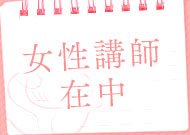 女性講師
在中